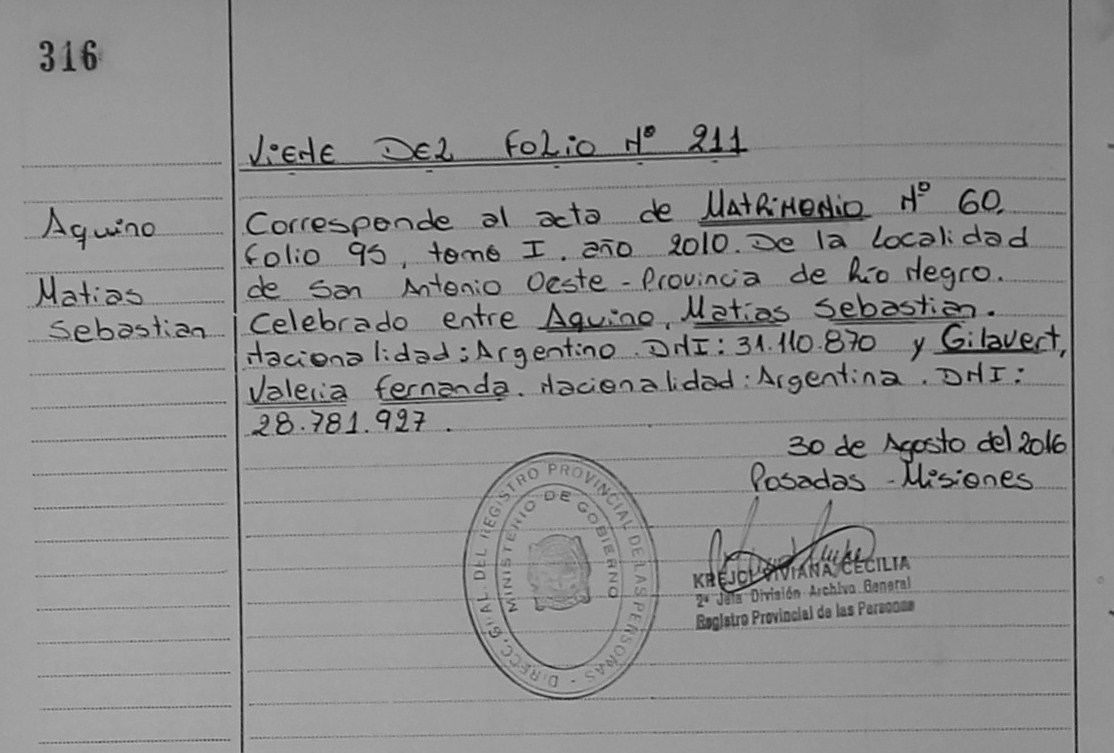 316
VIENE DEL FOLIO Nº 211
Aquino
Matias
Sebastian
Corresponde al acta de MATRIMONIO Nº 60.
Folio 95, tomo I. año 2010. De la Localidad
de San Antonio Oeste - Provincia de Río Negro.
Celebrado entre Aquino, Matias Sebastian.
Nacionalidad: Argentino. DNI: 31.110.870 y Gilavert,
Valeria Fernanda. Nacionalidad: Argentina. DNI:
28.781.927.
30 de Agosto del 2016
Posadas - Misiones
DIRECC. GRAL. DEL REGISTRO PROVINCIAL DE LAS PERSONAS
MINISTERIO DE GOBIERNO
KREJCI VIVIANA CECILIA
2ª Jefa División Archivo General
Registro Provincial de las Personas